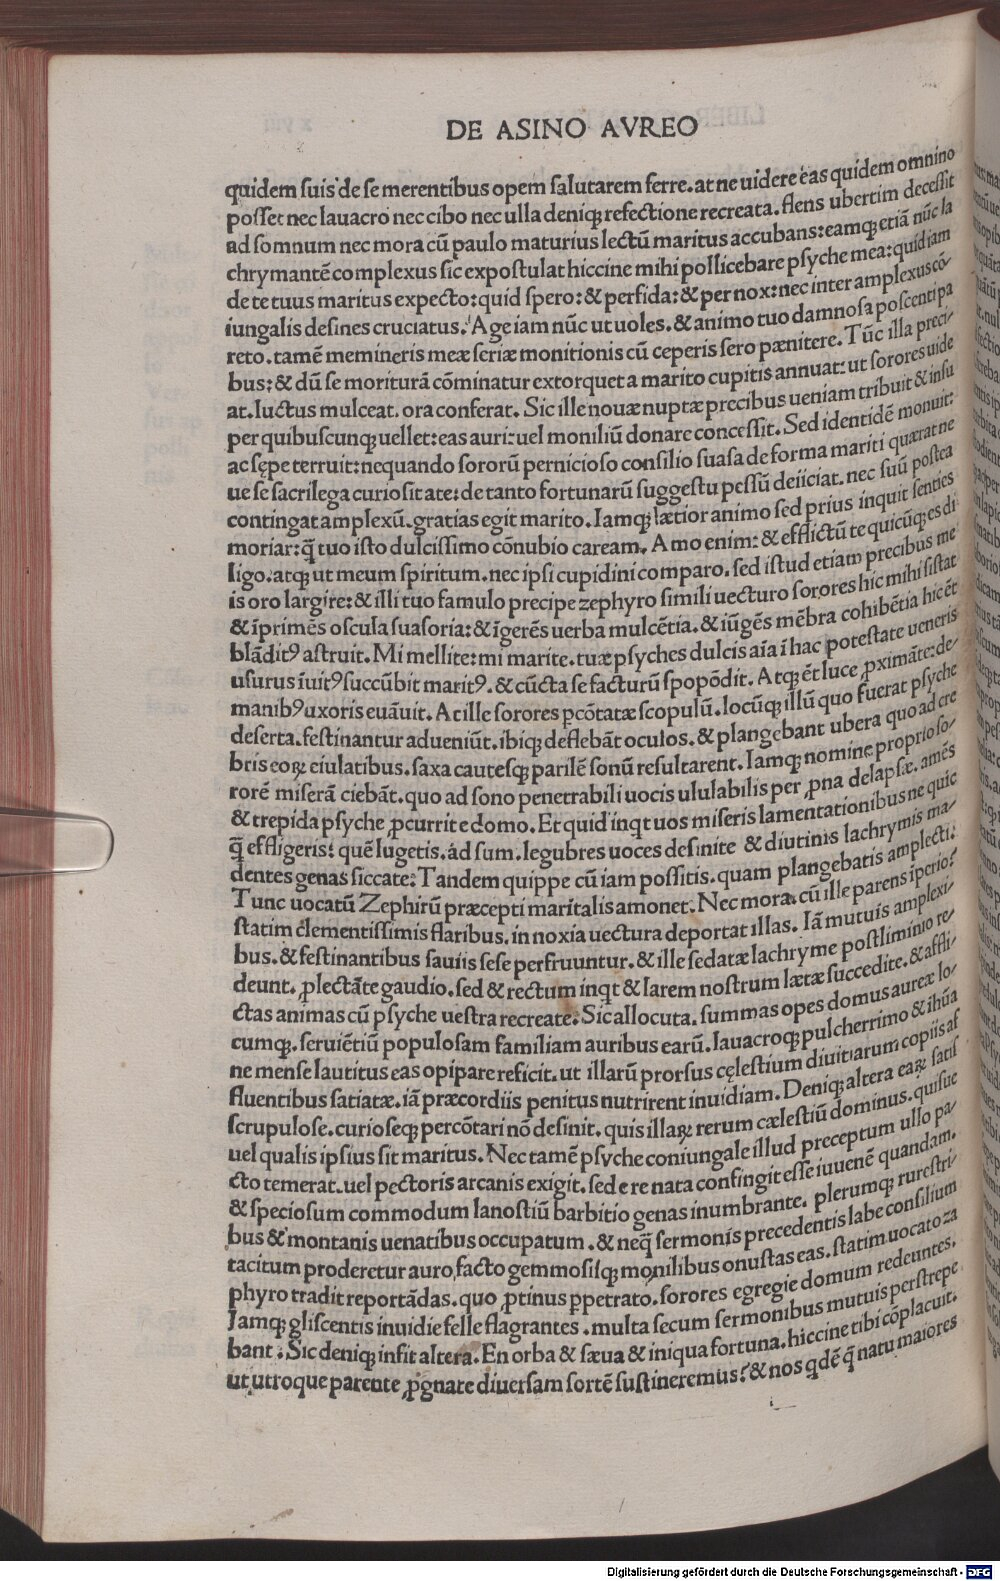 DE ASINO AVREO
quidem suis de se merentibus opem salutarem ferre. at ne uidere eas quidem omnino
posset nec lauacro nec cibo nec ulla deniqꝫ refectione recreata. flens ubertim decessit
ad somnum nec mora cũ paulo maturius lectũ maritus accubans: eamqꝫ etiã nũc la
chrymantẽ complexus sic expostulat hiccine mihi pollicebare psyche mea: quid iam
de te tuus maritus expecto: quid spero: & perfida: & per nox: nec inter amplexus cõ/
iungalis desines cruciatus. Age iam nũc ut uoles. & animo tuo damnosa poscenti pa
reto. tamẽ memineris meæ seriæ monitionis cũ ceperis sero pænitere. Tũc illa preci/
bus: & dũ se moriturã cõminatur extorquet a marito cupitis annuat: ut sorores uide
at. luctus mulceat. ora conferat. Sic ille nouæ nuptæ precibus ueniam tribuit & insu
per quibuscunqꝫ uellet: eas auri: uel moniliũ donare concessit. Sed identidẽ monuit:
ac sępe terruit: nequando sororũ pernicioso consilio suasa de forma mariti quærat ne
ue se sacrilega curiositate: de tanto fortunarũ suggestu pessũ deiiciat. nec suũ postea
contingat amplexũ. gratias egit marito. Iamqꝫ lætior animo sed prius inquit senties
moriar: q̃ tuo isto dulcissimo cõnubio caream. Amo enim: & efflictũ te quicũqꝫ es di
ligo. atqꝫ ut meum spiritum. nec ipsi cupidini comparo. sed istud etiam precibus me
is oro largire: & illi tuo famulo precipe zephyro simili uecturo sorores hic mihi sistat
& ĩprimẽs oscula suasoria: & ĩgerẽs uerba mulcẽtia. & iũgẽs mẽbra cohibẽtia hic ẽt
blãditꝰ astruit. Mi mellite: mi marite. tuæ psyches dulcis aĩa ĩ hac potestate ueneris
usurus ĩuitꝰ succũbit maritꝰ. & cũcta se facturũ spopõdit. Atqꝫ ẽt luce ꝓximãte: de/
manibꝰ uxoris euãuit. At ille sorores pcõtatæ scopulũ. locũqꝫ illũ quo fuerat psyche
deserta. festinantur adueniũt. ibiqꝫ deflebãt oculos. & plangebant ubera quo ad cre
bris eoꝝ eiulatibus. saxa cautesqꝫ parilẽ sonũ resultarent. Iamqꝫ nomine proprio so/
rorẽ miserã ciebãt. quo ad sono penetrabili uocis ululabilis per ꝓna delapsæ. amẽs
& trepida psyche ꝓcurrit e domo. Et quid inqt uos miseris lamentationibus ne quic
q̃ effligeris: quẽ lugetis. ad sum. legubres uoces desinite & diutinis lachrymis ma/
dentes genas siccate: Tandem quippe cũ iam possitis. quam plangebatis amplecti.
Tunc uocatũ Zephirũ præcepti maritalis amonet. Nec mora. cũ ille parens iperio:
statim clementissimis flaribus. in noxia uectura deportat illas. Iã mutuis amplexi/
bus. & festinantibus sauiis sese perfruuntur. & ille sedatæ lachryme postliminio re/
deunt. ꝓlectãte gaudio. sed & rectum inqt & larem nostrum lætæ succedite. & affli/
ctas animas cũ psyche uestra recreate: Sic allocuta. summas opes domus aureæ lo/
cumqꝫ. seruiẽtiũ populosam familiam auribus earũ. lauacroqꝫ pulcherrimo & ihũa
ne mense lautitus eas opipare reficit. ut illarũ prorsus cęlestium diuitiarum copiis af
fluentibus satiatæ. iã præcordiis penitus nutrirent inuidiam. Deniqꝫ altera eaꝝ satis
scrupulose. curioseqꝫ percõtari nõ desinit. quis illaꝝ rerum cælestiũ dominus. quisue
uel qualis ipsius sit maritus. Nec tamẽ psyche coniungale illud preceptum ullo pa/
cto temerat. uel pectoris arcanis exigit. sed e re nata confingit esse iuuenẽ quandam.
& speciosum commodum lanostiũ barbitio genas inumbrante. plerumqꝫ rurestri/
bus & montanis uenatibus occupatum. & neq̃ sermonis precedentis labe consilium
tacitum proderetur auro facto gemmosisqꝫ monilibus onustas eas. statim uocato za
phyro tradit reportãdas. quo ꝓtinus ppetrato. sorores egregie domum redeuntes.
Iamqꝫ gliscentis inuidie felle flagrantes. multa secum sermonibus mutuis perstrepe
bant: Sic deniqꝫ infit altera. En orba & sæua & iniqua fortuna. hiccine tibi cõplacuit.
ut utroque parente ꝓgnate diuersam sortẽ sustineremus? & nos qdẽ q̃ natu maiores
Digitalisierung gefördert durch die Deutsche Forschungsgemeinschaft - DFG